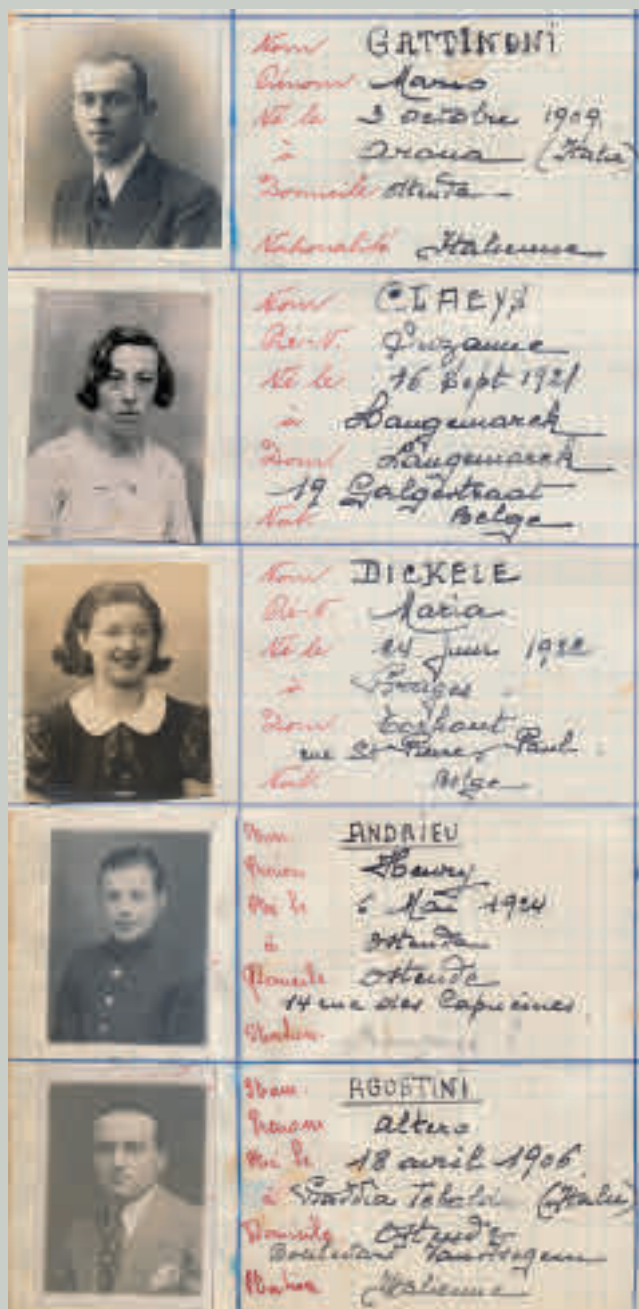 Nom GATTINONI
Prénom Mario
Né le 3 octobre 1909
à Arona (Italie)
Domicile Ostende
Nationalité Italienne
Nom CLAEYS
Pré-N. Suzanne
Né le 16 Sept 1921
à Langemarck
Dom Langemarck
19 Galgestraat
Nat. Belge
Nom DICKELE
Pré-N Maria
Né le 24 Juin 1922
à Bruges
Dom Torhout
rue St Pierre, Paul
Nat. Belge
Nom ANDRIEU
Prénom Henry
Né le 6 Mai 1924
à Ostende
Domicile Ostende
14 rue des Capucines
Nom AGOSTINI
Prénom Altero
Né le 18 avril 1906
à (Italie)
Domicile Ostende
Boulevard
Italienne